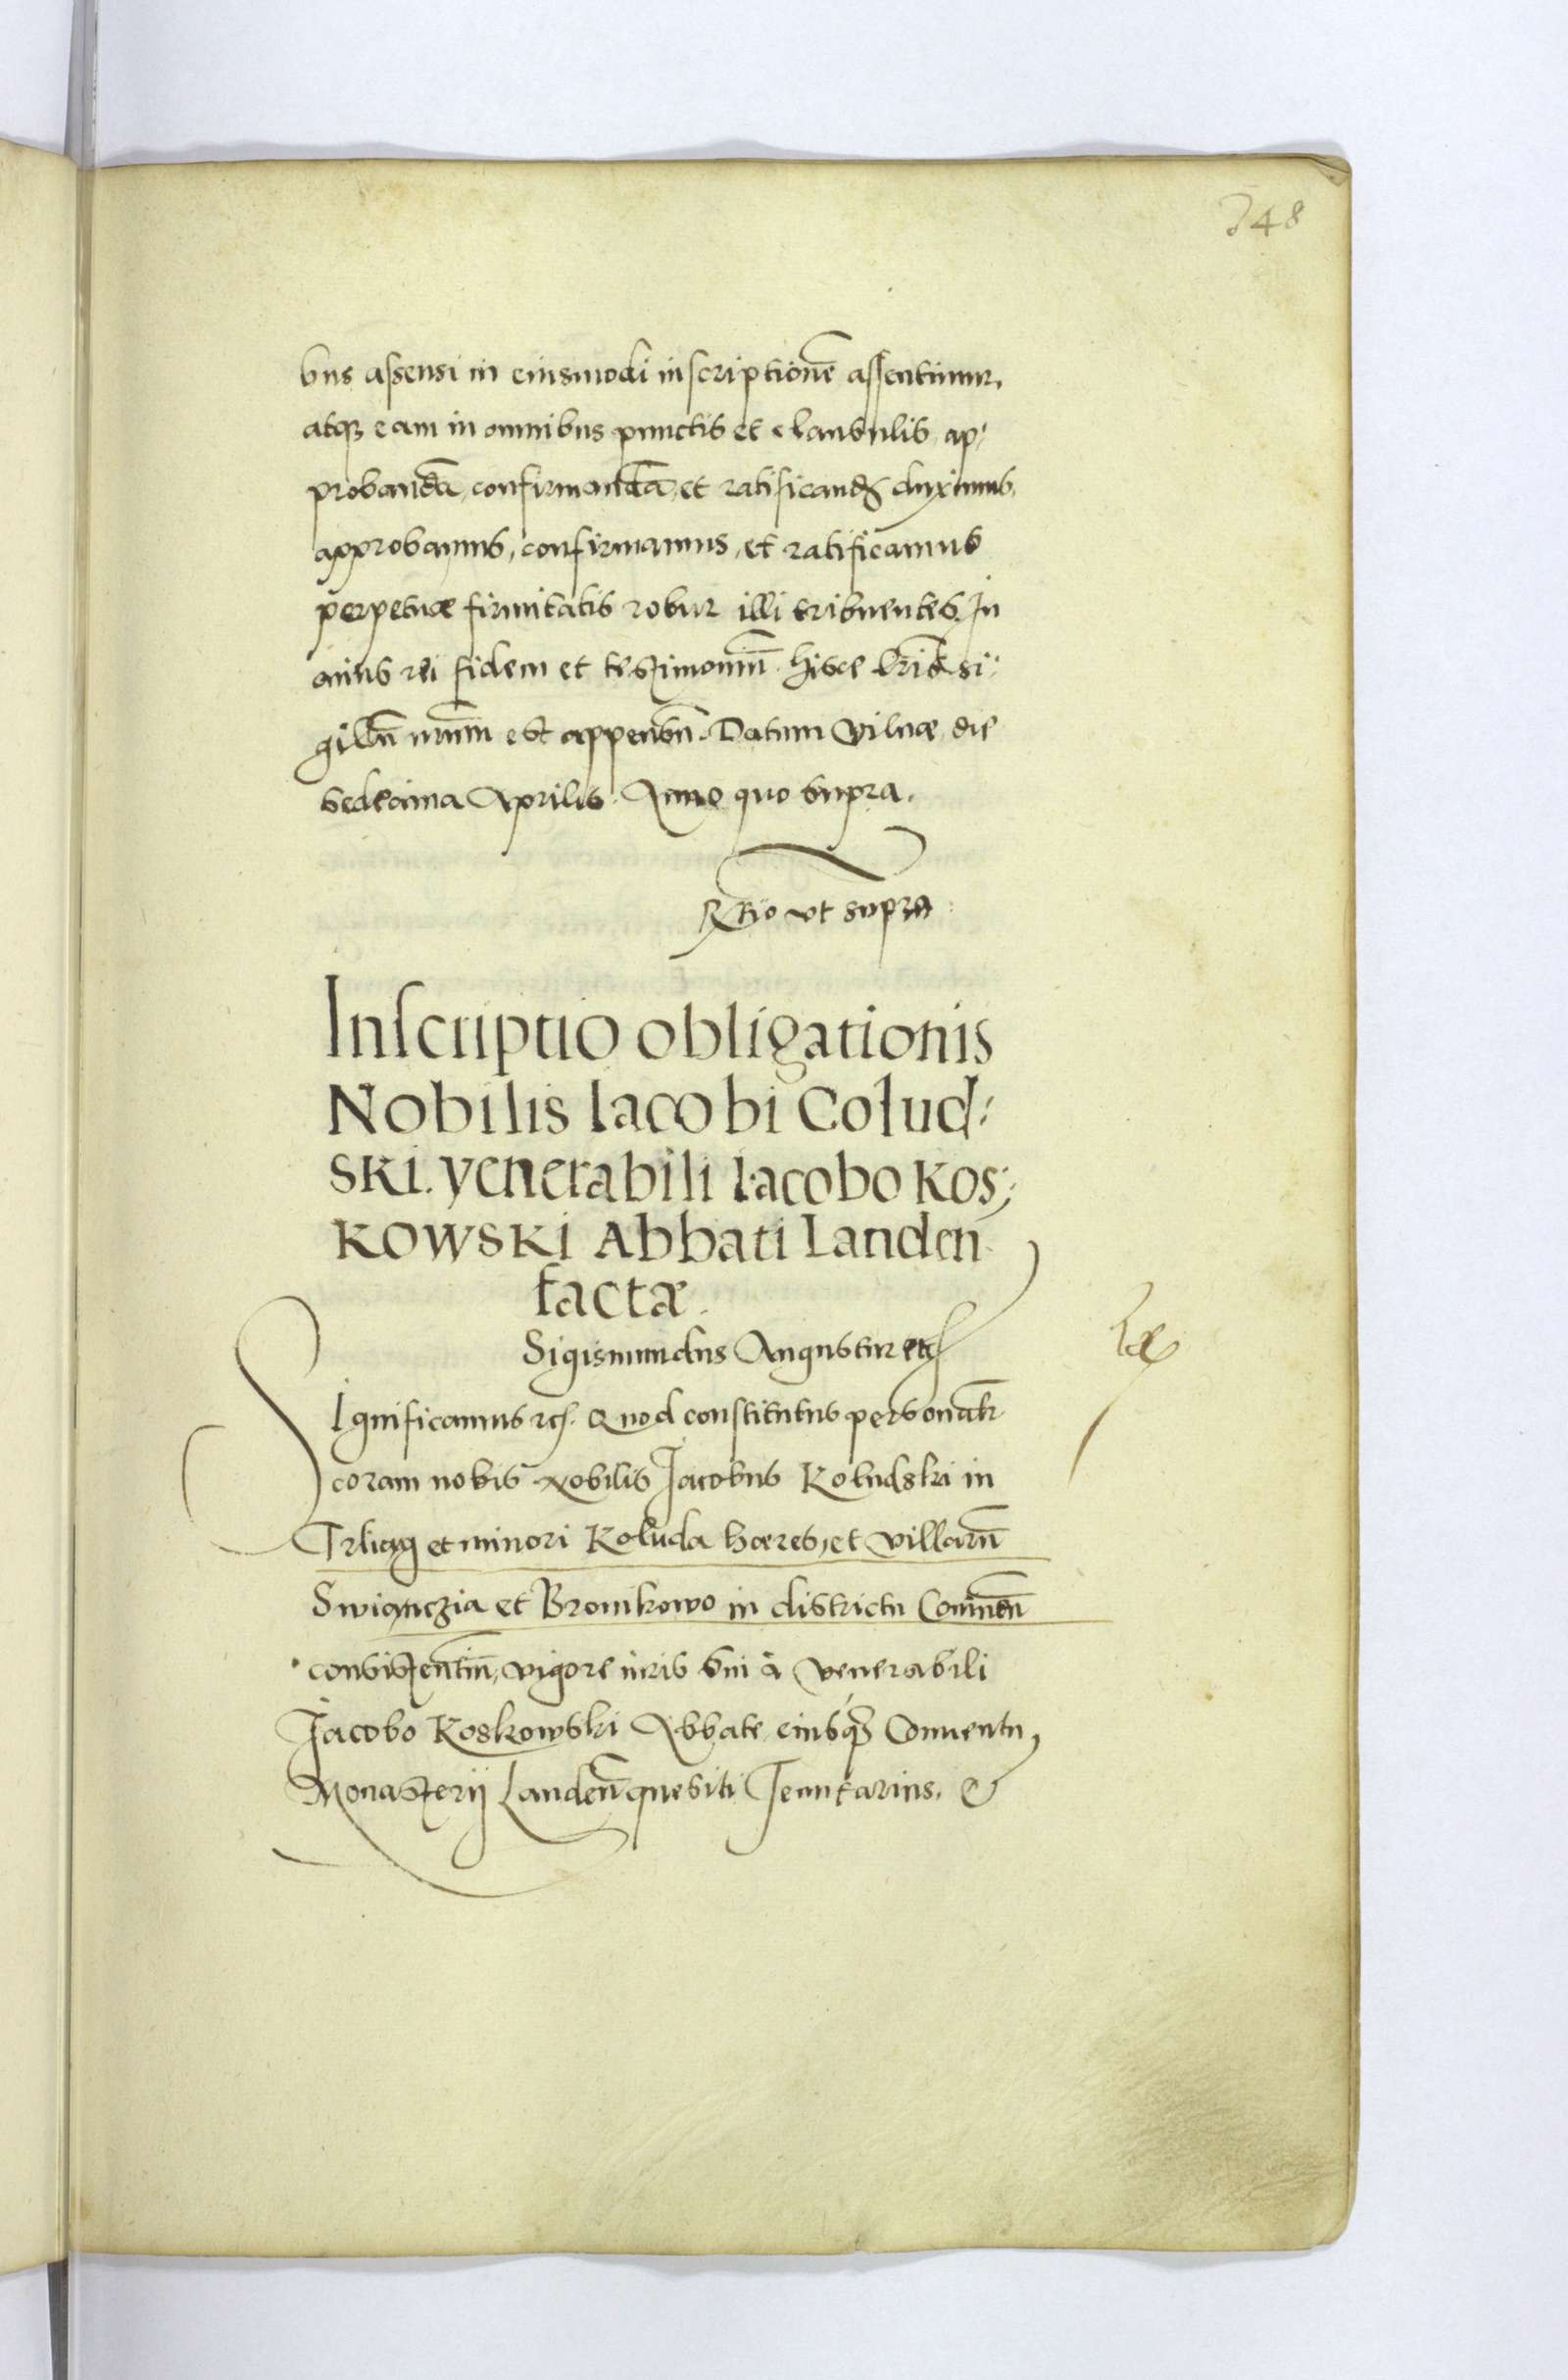 348
bus assensi in eiusmodi inscriptionē assentimur.
atq; eam in omnibus punctis et clausulis ap-
probandā, confirmandā, et ratificand duximus,
approbamus, confirmamus, et ratificamus
perpetuæ firmitatis robur illi tribuentes. In
cuius rei fidem et testimoniū hisce lris si-
gillū nrum est appensū. Datum Vilnæ die
sedecima Aprilis. Anno quo supra.
Rtio vt supra
Inscriptio obligationis
Nobilis Iacobi Colud-
ski. venerabili Iacobo Kos-
kowski Abbati Landen
factæ.
Sigismundus Augustus etc
Significamus etc. Quod constitutus personalr
coram nobis Nobilis Jacobus Koludski in
et minori Koluda hæres, et villarū
Swiąnczia et Bronikowo in districtu Coninen
consistentiū, vigore iuris sui à venerabili
Jacobo Koskowski Abbate eiusq; Conuentu
Monasterij Landeñ quesiti Tenutarius. &